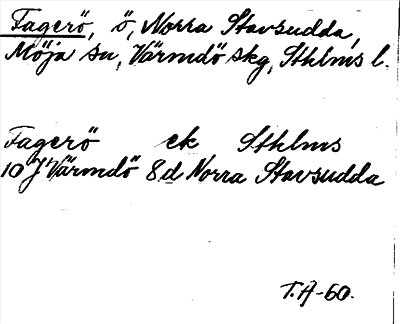 Fagerö, ö, Norra Stavsudda,
Möja sn, Värmdö skg, Sthlms l.
Fagerö ek Sthlms
10 J Värmdö 8d Norra Stavsudda
T.A-60.